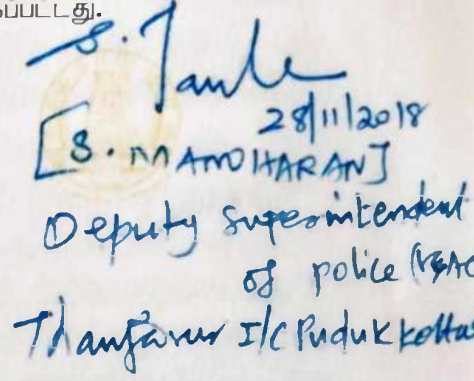 28/11/2018
[S. MANOHARAN]
Deputy Superintendent
of police
Thanjavur I/C Pudukkottai